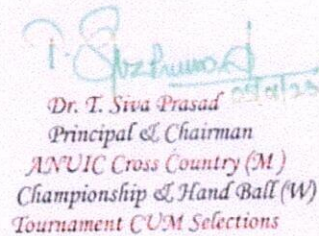 Dr. T. Siva Prasad
Principal & Chairman
ANUIC Cross Country (M)
Championship & Hand Ball (W)
Tournament CUM Selections